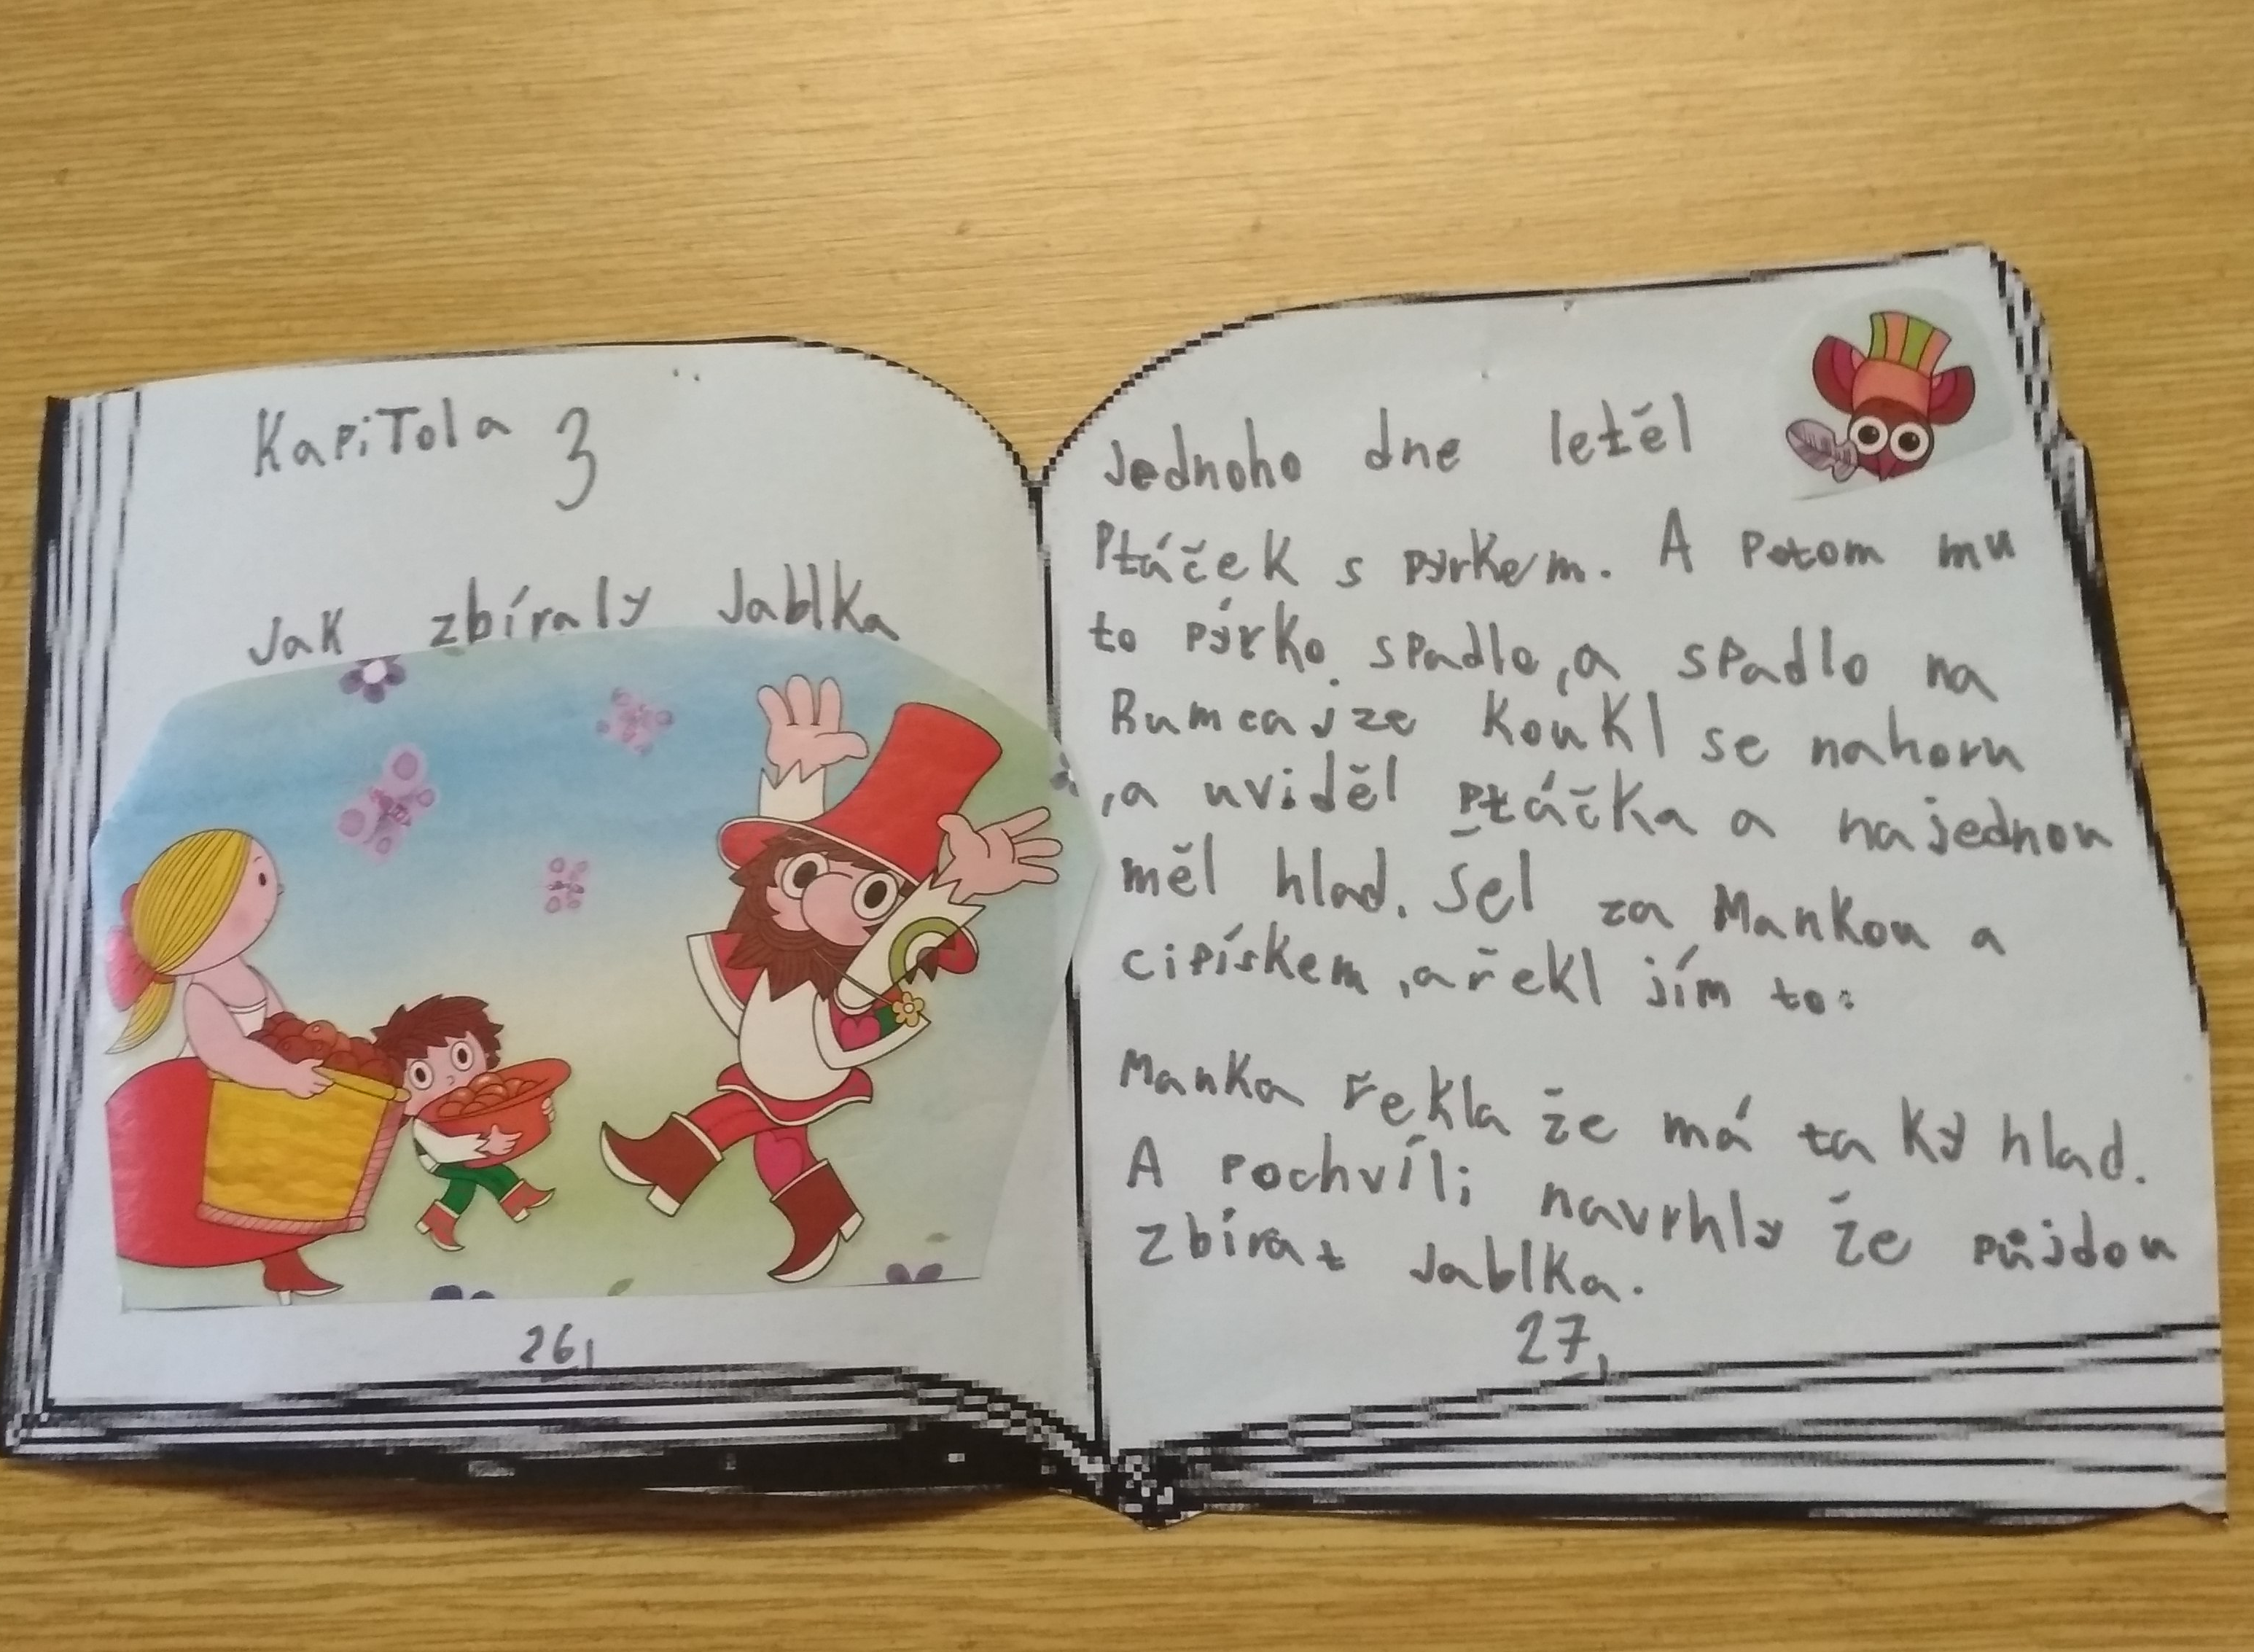 KapiTola 3
Jak zbíraly Jablka
26,
Jednoho dne letěl
Ptáček s pýrkem. A Potom mu
to pýrko spadlo,a spadlo na
Rumcajze koukl se nahoru
,a uviděl ptáčka a najednou
měl hlad. Šel za Mankou a
cipískem,a řekl jím to:
Manka řekla že má taký hlad.
A pochvíli navrhly že půjdou
zbírat Jablka.
27,